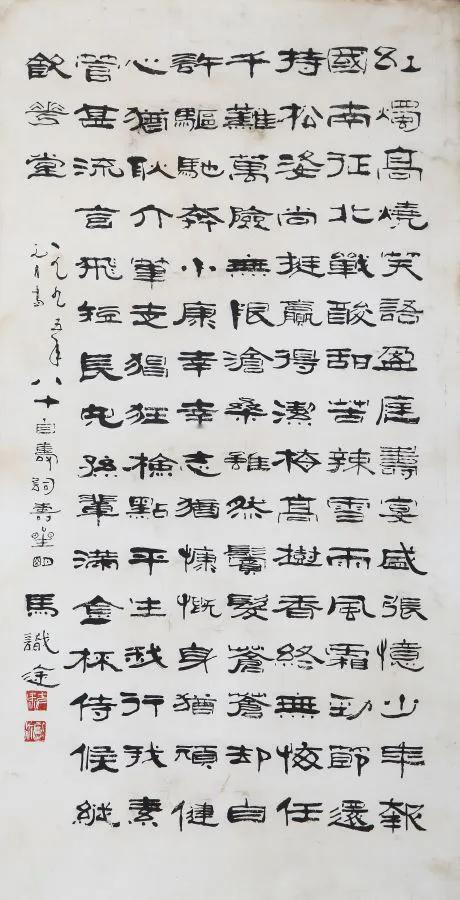 紅燭高燒笑語盈庭壽宴盛張憶少年報
國南征北戰酸甜苦辣雪雨風霜勁節還
持松姿尚挺贏得潔梅高樹香終無悔任
千難萬險無限滄桑雖然鬢髮蒼蒼却自
許驅馳奔小康幸幸志猶慷慨身猶頑健
心猶耿介筆走猖狂檢點平生我行我素
管甚流言飛短長兒孫輩滿金杯侍候縱
飲華堂
一九九五年八十自壽詞壽星明 馬識途
元月書